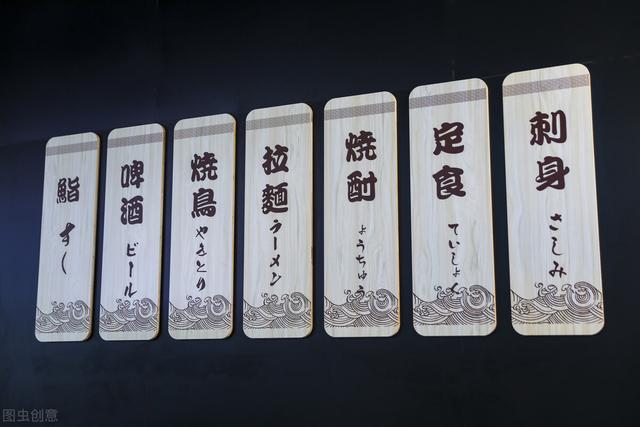 鮨 すし
啤酒 ビール
焼鳥 やきとり
拉麺 ラーメン
焼酎 ようちゅう
定食 ていしょく
刺身 さしみ
图虫创意